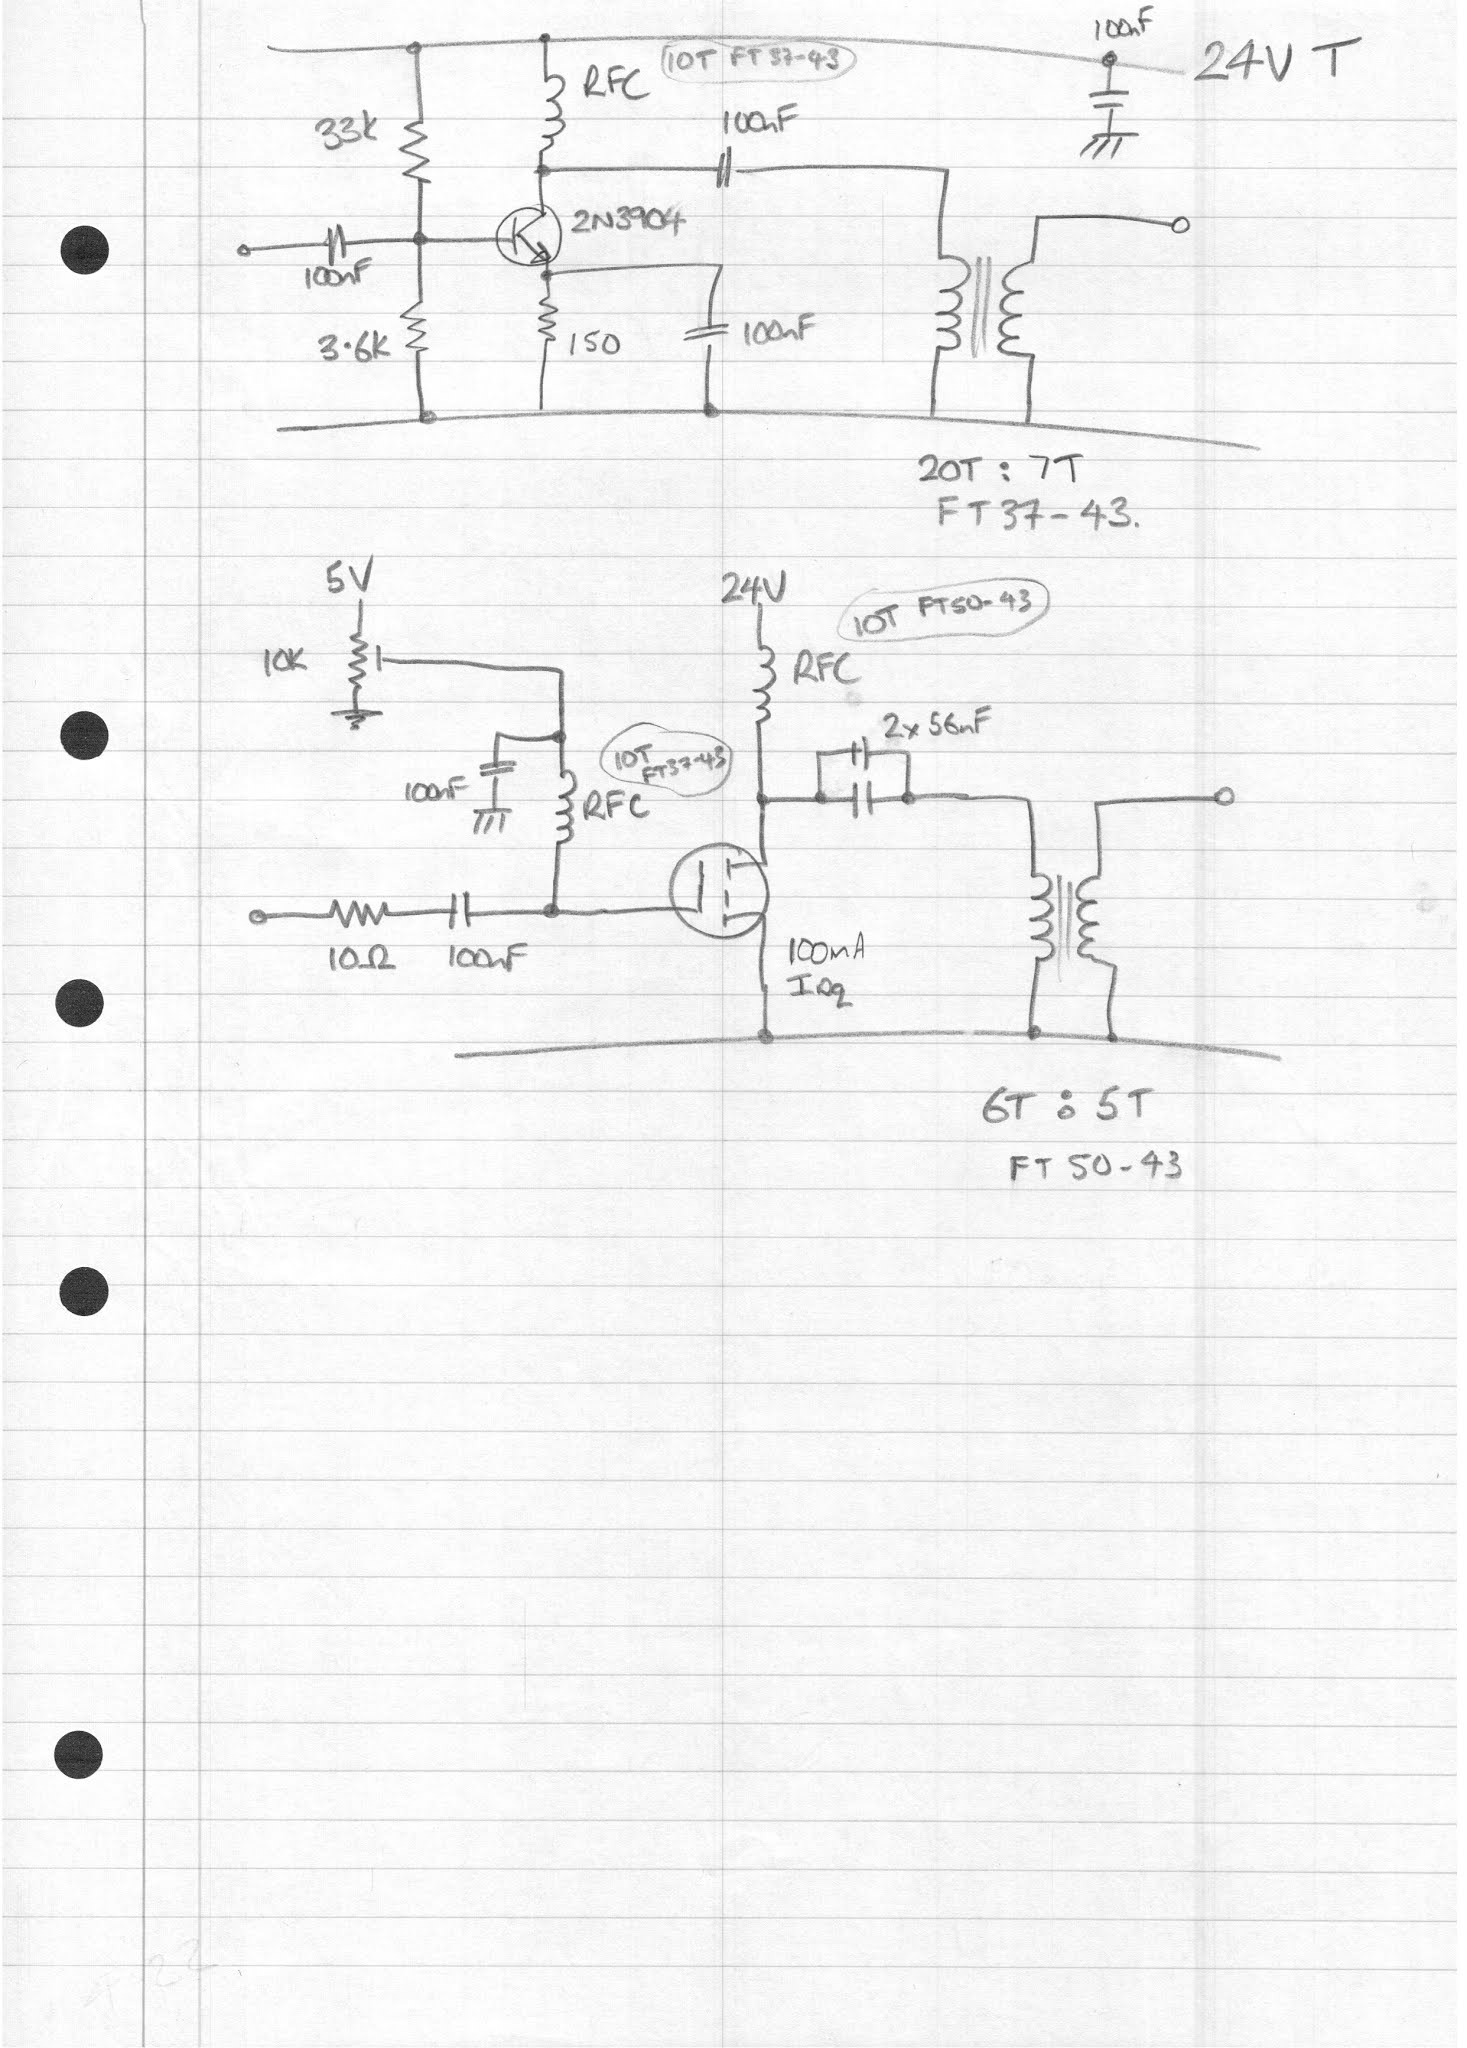 100nF
24V T
10T FT37-43
RFC
33K
100nF
2N3904
100nF
3.6K
150
100nF
20T : 7T
FT37-43.
5V
24V
10T FT50-43
10K
RFC
2x56nF
10T
FT37-43
100nF
RFC
10Ω
100nF
100mA
IDq
6T : 5T
FT 50-43